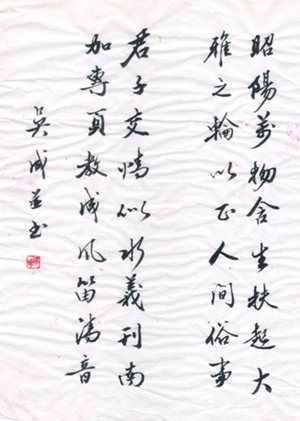 昭陽萬物含生扶起大
雅之輪以正人间俗事
君子交情似水義刊南
加專頁教成風笛清音
吳成並书